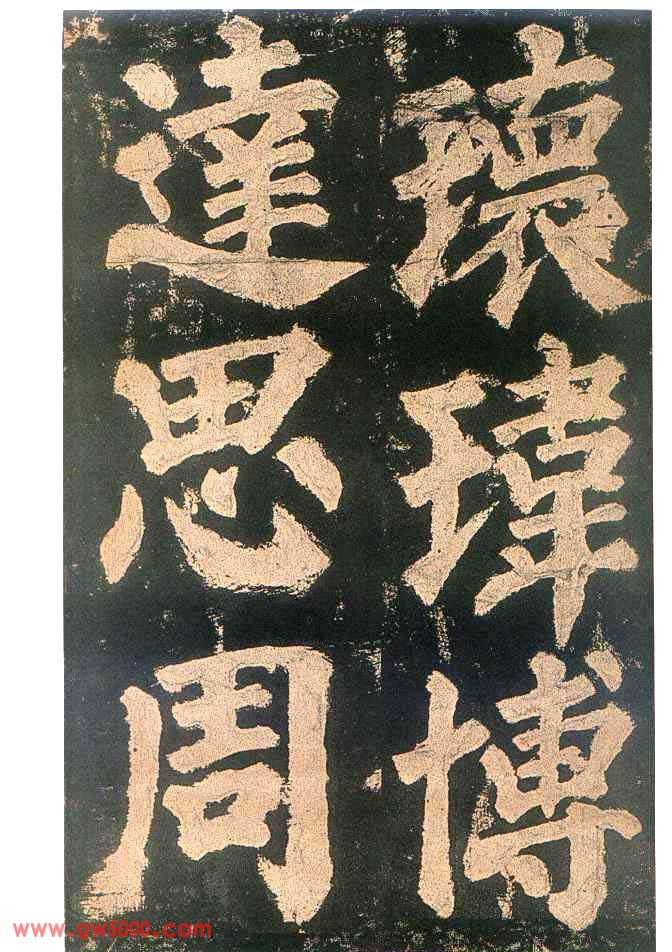 瓌瑋博
達思周
www.gw5000.com